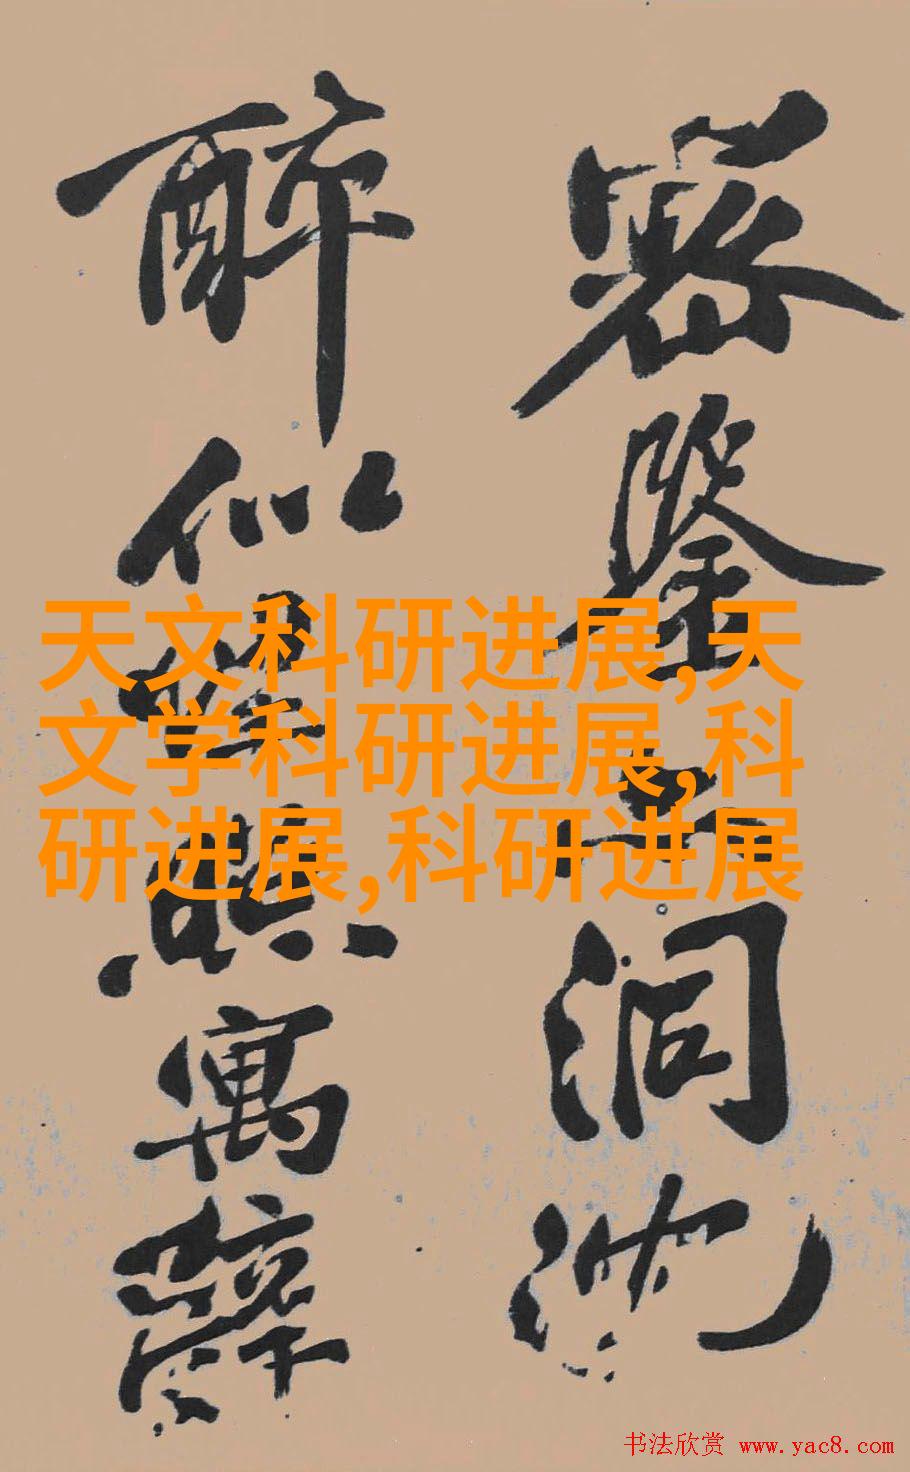 密鉴洞沈
醉似寓辞
天文科研进展,天
文学科研进展,科
研进展,科研进展
书法欣赏 www.yac8.com